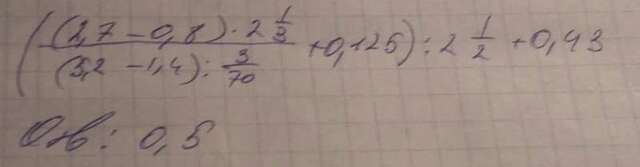 ( (2,7 - 0,8) · 2 1/3 / (5,2 - 1,4) : 3/70 + 0,125) : 2 1/2 + 0,43
Отв: 0,5